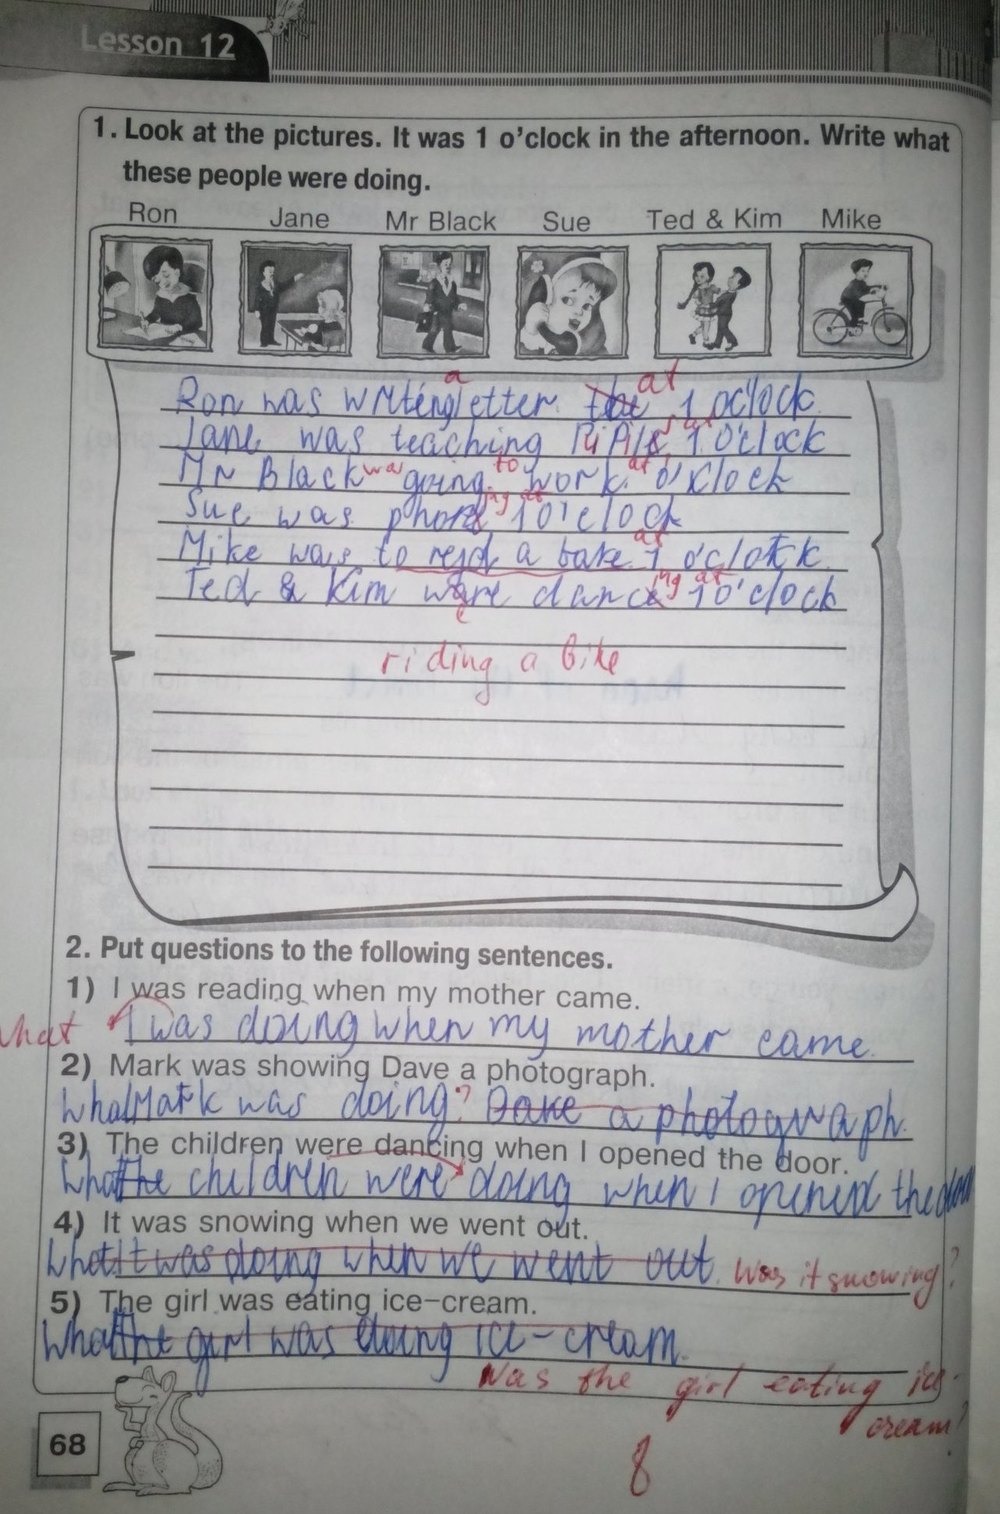 Lesson 12
1. Look at the pictures. It was 1 o'clock in the afternoon. Write what
these people were doing.
Ron Jane Mr Black Sue Ted & Kim Mike
a at
Ron was writing letter 1 o'clock
Jane was teaching pupils 1 o'clock
Mr Black was going to work at o'klock
ing at
Sue was phone 1 o'clock
at
Mike was to read a bake 1 o'clock.
ing at
Ted & Kim ware dance 1 o'clock
e
riding a bike
2. Put questions to the following sentences.
1) I was reading when my mother came.
what I was doing when my mother came.
2) Mark was showing Dave a photograph.
What Mark was doing? Dake a photograph.
3) The children were dancing when I opened the door.
What the children were doing when I opened the door
4) It was snowing when we went out.
What It was doing when we went out. Was it snowing?
5) The girl was eating ice-cream.
What the girl was doing ice-cream.
Was the girl eating ice-
cream?
68
8